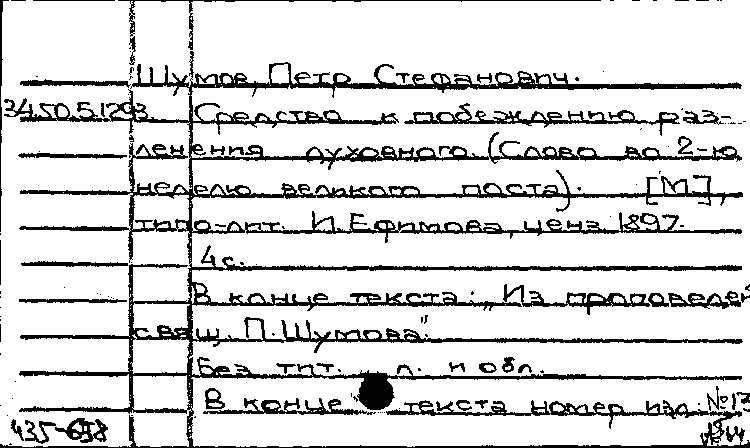 Шумов, Петр Стефанович.
34.50.5.1293. Средство к побеждению раз-
ленения духовного. (Слово во 2-ю
неделю великого поста). [М],
типо-лит. И. Ефимова, ценз 1897.
4 с.
В конце текста: „Из проповедей
свящ. П. Шумова".
Без тит. л. и обл.
В конце текста номер изд: №
435-